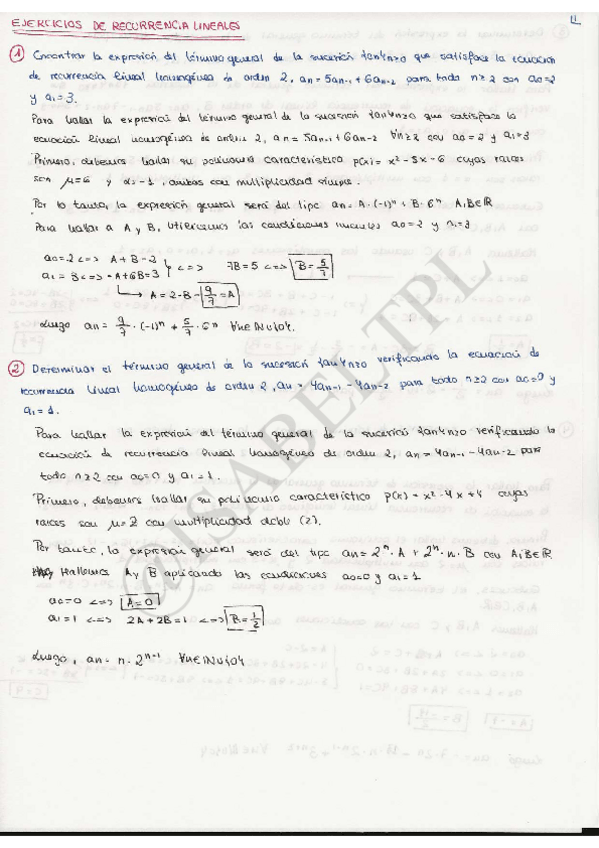 11
EJERCICIOS DE RECURRENCIA LINEALES
① Encontrar la expresión del término general de la sucesión {an}n≥0 que satisface la ecuación
de recurrencia lineal homogénea de orden 2, an = 5an-1 + 6an-2 para todo n≥2 con a0=2
y a1=3.
Para hallar la expresión del término general de la sucesión {an}n≥0 que satisface la
ecuación lineal homogénea de orden 2, an = 5an-1 + 6an-2 ∀n≥2 con a0=2 y a1=3
Primero, debemos hallar su polinomio característico p(x) = x²-5x-6 cuyas raíces
son μ=6 y α=-1, ambas con multiplicidad simple.
Por lo tanto, la expresión general será del tipo an = A·(-1)ⁿ + B·6ⁿ A,B∈ℝ
Para hallar a A y B, utilicemos las condiciones iniciales a0=2 y a1=3
a0=2 <=> A+B=2
a1=3 <=> -A+6B=3 } <=> 7B=5 <=> B=5/7
→ A=2-B=9/7=A
Luego an = 9/7·(-1)ⁿ + 5/7·6ⁿ ∀n∈ℕ∪{0}.
② Determinar el término general de la sucesión {an}n≥0 verificando la ecuación de
recurrencia lineal homogénea de orden 2, an = 4an-1 - 4an-2 para todo n≥2 con a0=0 y
a1=1.
Para hallar la expresión del término general de la sucesión {an}n≥0 verificando la
ecuación de recurrencia lineal homogénea de orden 2, an = 4an-1 - 4an-2 para
todo n≥2 con a0=0 y a1=1.
Primero, debemos hallar su polinomio característico p(x) = x²-4x+4 cuyas
raíces son μ=2 con multiplicidad doble (2).
Por tanto, la expresión general será del tipo an = 2ⁿ·A + 2ⁿ·n·B con A,B∈ℝ
Hallemos A y B aplicando las condiciones a0=0 y a1=1
a0=0 <=> A=0
a1=1 <=> 2A+2B=1 <=> B=1/2
Luego, an = n·2ⁿ⁻¹ ∀n∈ℕ∪{0}
@ISABELTPL